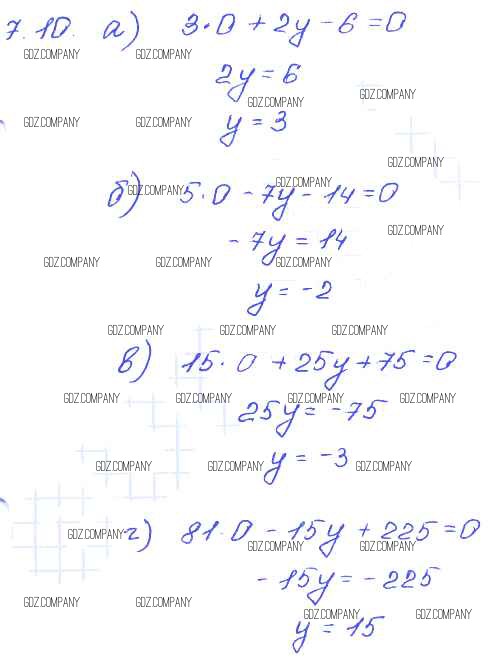 7.10. а) 3·0 + 2y - 6 = 0
GDZ.COMPANY GDZ.COMPANY
2y = 6
GDZ.COMPANY GDZ.COMPANY
GDZ.COMPANY GDZ.COMPANY y = 3
GDZ.COMPANY
б) GDZ.COMPANY 5·0 - 7y - 14 = 0 GDZ.COMPANY
- 7y = 14 GDZ.COMPANY
GDZ.COMPANY GDZ.COMPANY GDZ.COMPANY
y = -2
GDZ.COMPANY GDZ.COMPANY GDZ.COMPANY
в) 15·0 + 25y + 75 = 0
GDZ.COMPANY GDZ.COMPANY GDZ.COMPANY GDZ.COMPANY
25y = -75
GDZ.COMPANY GDZ.COMPANY y = -3 GDZ.COMPANY
GDZ.COMPANY г) 81·0 - 15y + 225 = 0
GDZ.COMPANY GDZ.COMPANY
- 15y = - 225
GDZ.COMPANY GDZ.COMPANY
GDZ.COMPANY GDZ.COMPANY
y = 15